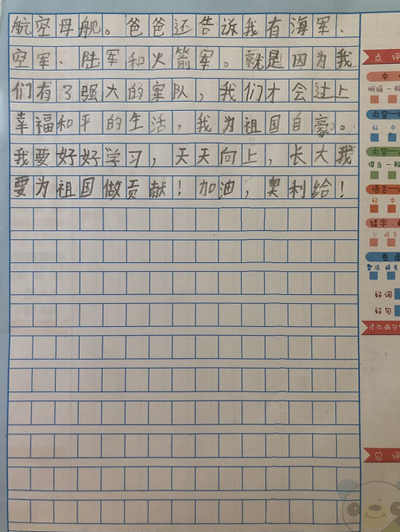 航空母舰。爸爸还告诉我有海军、
空军、陆军和火箭军。就是因为我
们有了强大的军队，我们才会过上
幸福和平的生活，我为祖国自豪。
我要好好学习，天天向上，长大我
要为祖国做贡献！加油，奥利给！
点评
好词
好句
总评